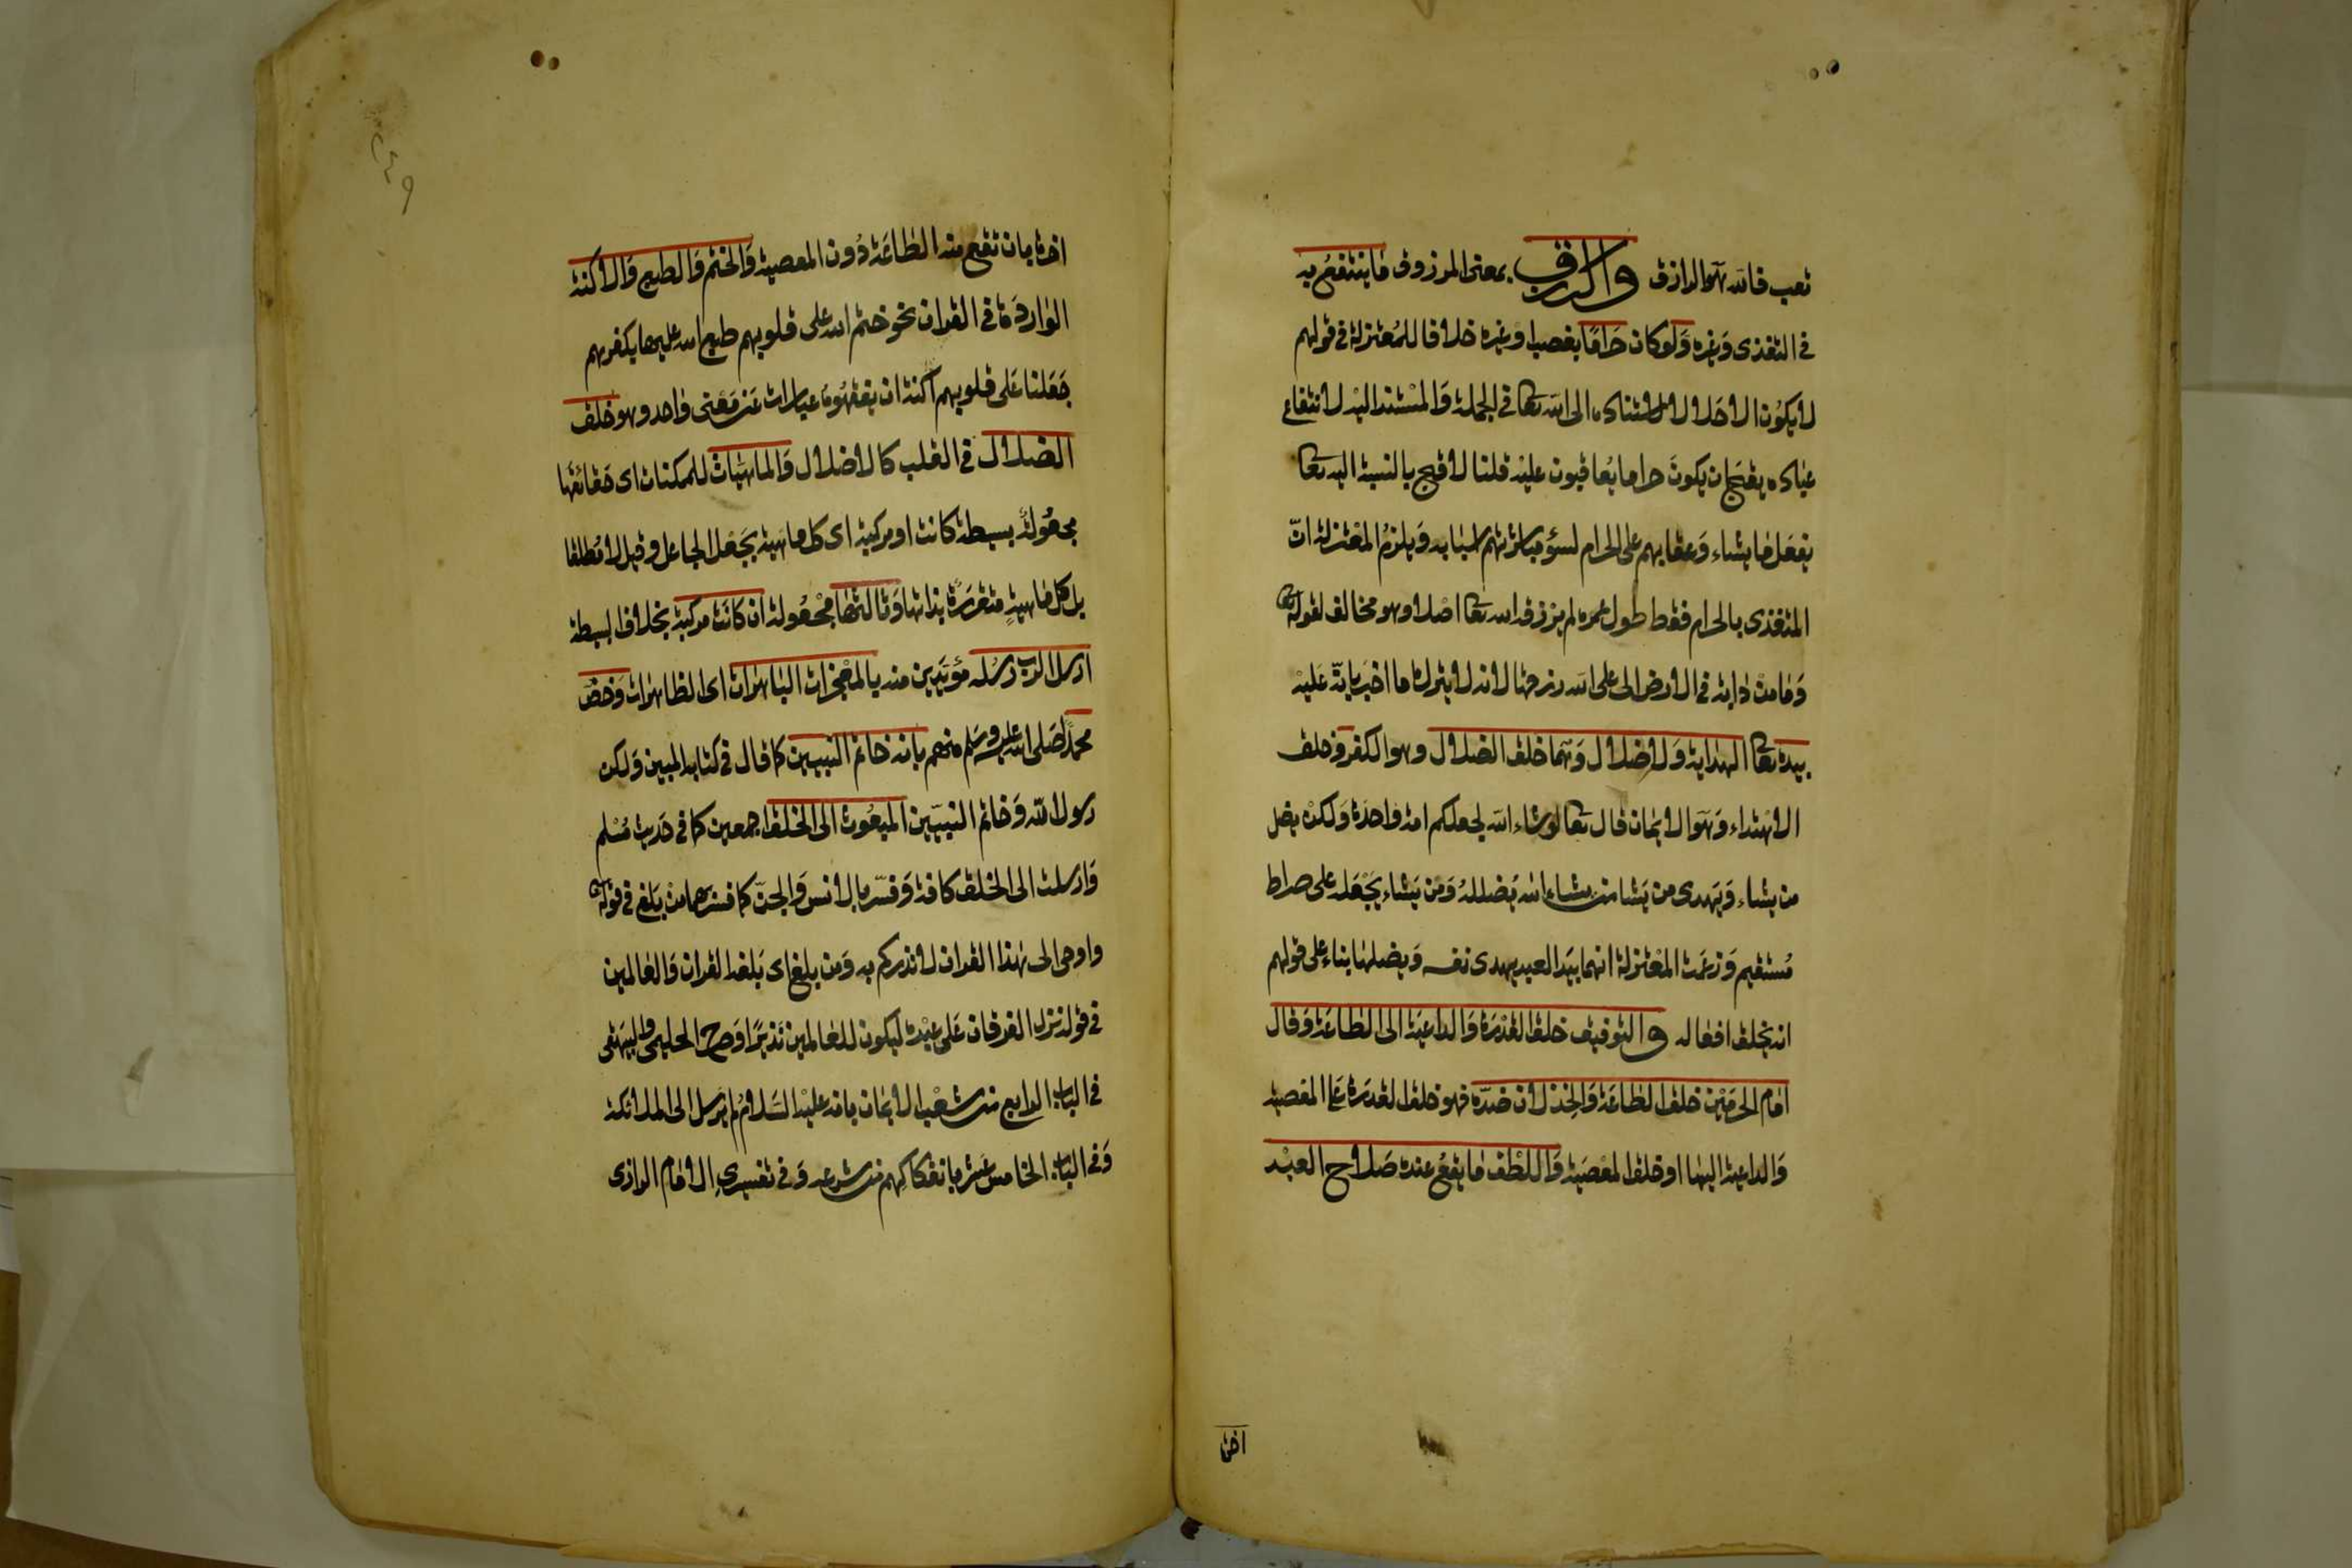 تعب فانه هو الرازق والرزق بمعنى المرزوق ما ينتفع به
في التغذى وغيره ولو كان حراما بغصب او غيره خلافا للمعتزلة في قولهم
لا يكون الا حلالا لاستناده الى الله تعا في الجملة والمستند اليه لانتفاع
عباده يقبح ان يكون حراما يعاقبون عليه قلنا لا قبح بالنسبة اليه تعا
يفعل ما يشاء وعقابهم على الحرام لسؤ مباشرتهم اسبابه ويلزم المعتزلة ان
المتغذى بالحرام فقط طول عمره لم يرزقه الله تعا اصلا وهو مخالف لقوله تعا
وما من دابة في الارض الا على الله رزقها لانه لا يترك ما اخبر بانه عليه
بيده تعا الهداية والاضلال وهما خلق الضلال وهو الكفر وخلق
الاهتداء وهو الايمان قال تعا لو شاء الله لجعلكم امة واحدة ولكن يضل
من يشاء ويهدى من يشا من يشاء الله يضلله ومن يشاء يجعله على صراط
مستقيم وزعمت المعتزلة انهما بيد العبد يهدى نفسه ويضلها بناء على قولهم
انه يخلق افعاله والتوفيق خلق القدرة والداعية الى الطاعة وقال
امام الحرمين خلق الطاعة والخذلان ضده فهو خلق القدرة على المعصية
والداعية اليها او خلق المعصية واللطف ما يقع عنده صلاح العبد
اخرة
اخرة بان تقع منه الطاعة دون المعصية والختم والطبع والاكنة
الواردة في القران نحو ختم الله على قلوبهم طبع الله عليها بكفرهم
جعلنا على قلوبهم اكنة ان يفقهوه عبارات عن معنى واحد وهو خلق
الضلال في القلب كالاضلال والماهيات للممكنات اى حقائقها
مجعولة بسيطة كانت او مركبة اى كل ماهية بجعل الجاعل وقيل لا مطلقا
بل كل ماهية متقررة بذاتها وثالثها مجعولة ان كانت مركبة بخلاف البسيطة
ارسل الرب رسله مؤيدين منه بالمعجزات الباهرات اى الظاهرات وخص
محمد صلى الله عليه وسلم منهم بانه خاتم النبيين كما قال في كتابه المبين ولكن
رسول الله وخاتم النبيين المبعوث الى الخلق اجمعين كما في حديث مسلم
وارسلت الى الخلق كافة وفسر بالانس والجن كما فسر بهما من بلغ في قوله تعا
واوحى الى هذا القران لانذركم به ومن بلغ اى بلغه القران والعالمين
في قوله نزل الفرقان على عبده ليكون للعالمين نذيرا وصرح الحليمى والبيهقى
في الباب الرابع من شعب الايمان بانه عليه السلام لم يرسل الى الملائكة
وفي الباب الخامس عشر بانفكاكهم من شرعه وفي تفسيرى الامام الرازى